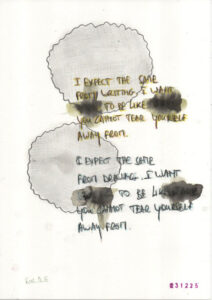 I EXPECT THE SAME
FROM WRITING. I WANT
TO BE LIKE
YOU CANNOT TEAR YOURSELF
AWAY FROM.
I EXPECT THE SAME
FROM DRAWING. I WANT
TO BE LIKE
YOU CANNOT TEAR YOURSELF
AWAY FROM.
031225